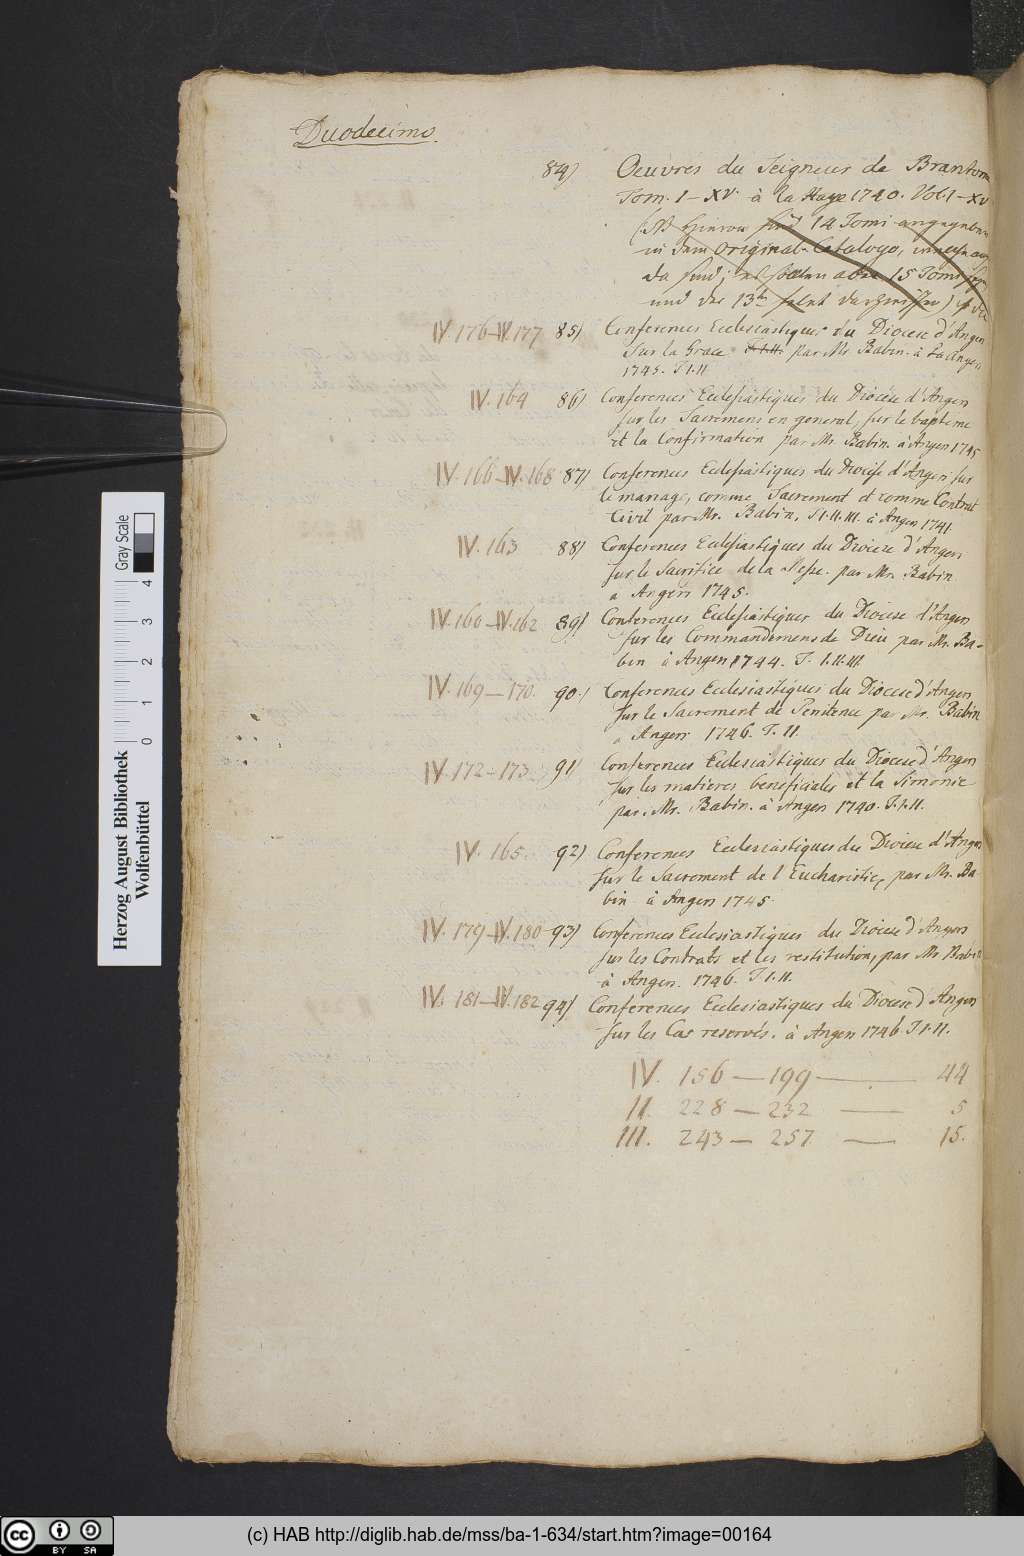 Duodecimo.
84) Oeuvres du Seigneur de Brantom
Tom. I–XV. à la Haye 1740. Vol. I–XV
(NB hievon sind 14 Tomi angegeben
in dem Original-Catalogo,
da sind; es 15 Tomi
und der 13te fehlt
IV. 176–IV. 177 85) Conferences Ecclesiastiques du Diocese d'Angers
sur la Grace T. I. II. par Mr. Babin. à Angers
1745. T. I. II
IV. 164 86) Conferences Ecclesiastiques du Diocése d'Angers
sur les Sacremens en general, sur le baptême
et la Confirmation par Mr. Babin. à Angers 1745
IV. 166–IV. 168 87) Conferences Ecclesiastiques du Diocése d'Angers sur
le mariage, comme Sacrement et comme Contrat
Civil par Mr. Babin, T. I. II. III. à Angers 1741.
IV. 163 88) Conferences Ecclesiastiques du Diocese d'Angers,
sur le Sacrifice de la Messe. par Mr. Babin
a Angers 1745.
IV. 160–IV. 162 89) Conferences Ecclesiastiques du Diocese d'Angers
sur les Commandemens de Dieu par Mr. Ba-
bin à Angers 1744. T. I. II. III.
IV. 169–170. 90.) Conferences Ecclesiastiques du Diocese d'Angers
sur le Sacrement de Penitence par Mr. Babin
a Angers 1746. T. II.
IV. 172–173. 91) Conferences Ecclesiastiques du Diocese d'Angers
sur les matieres beneficiales et la Simonie
par. Mr. Babin. à Angers 1740. T. I. II.
IV. 165. 92) Conferences Ecclesiastiques du Diocese d'Angers
sur le Sacrement de l'Eucharistie, par Mr. Ba
bin à Angers 1745.
IV. 179–IV. 180 93) Conferences Ecclesiastiques du Diocese d'Angers
sur les Contrats et les restitution, par Mr Babin
à Angers. 1746. T. I. II.
IV. 181–IV. 182 94) Conferences Ecclesiastiques du Diocese d'Angers
sur les Cas reservés. à Angers 1746 T. I. II.
IV. 156 — 199 — 44
II. 228 — 232 — 5
III. 243 — 257 — 15.
Herzog August Bibliothek
Wolfenbüttel
0 1 2 3 4
Gray Scale
cc BY SA
(c) HAB http://diglib.hab.de/mss/ba-1-634/start.htm?image=00164